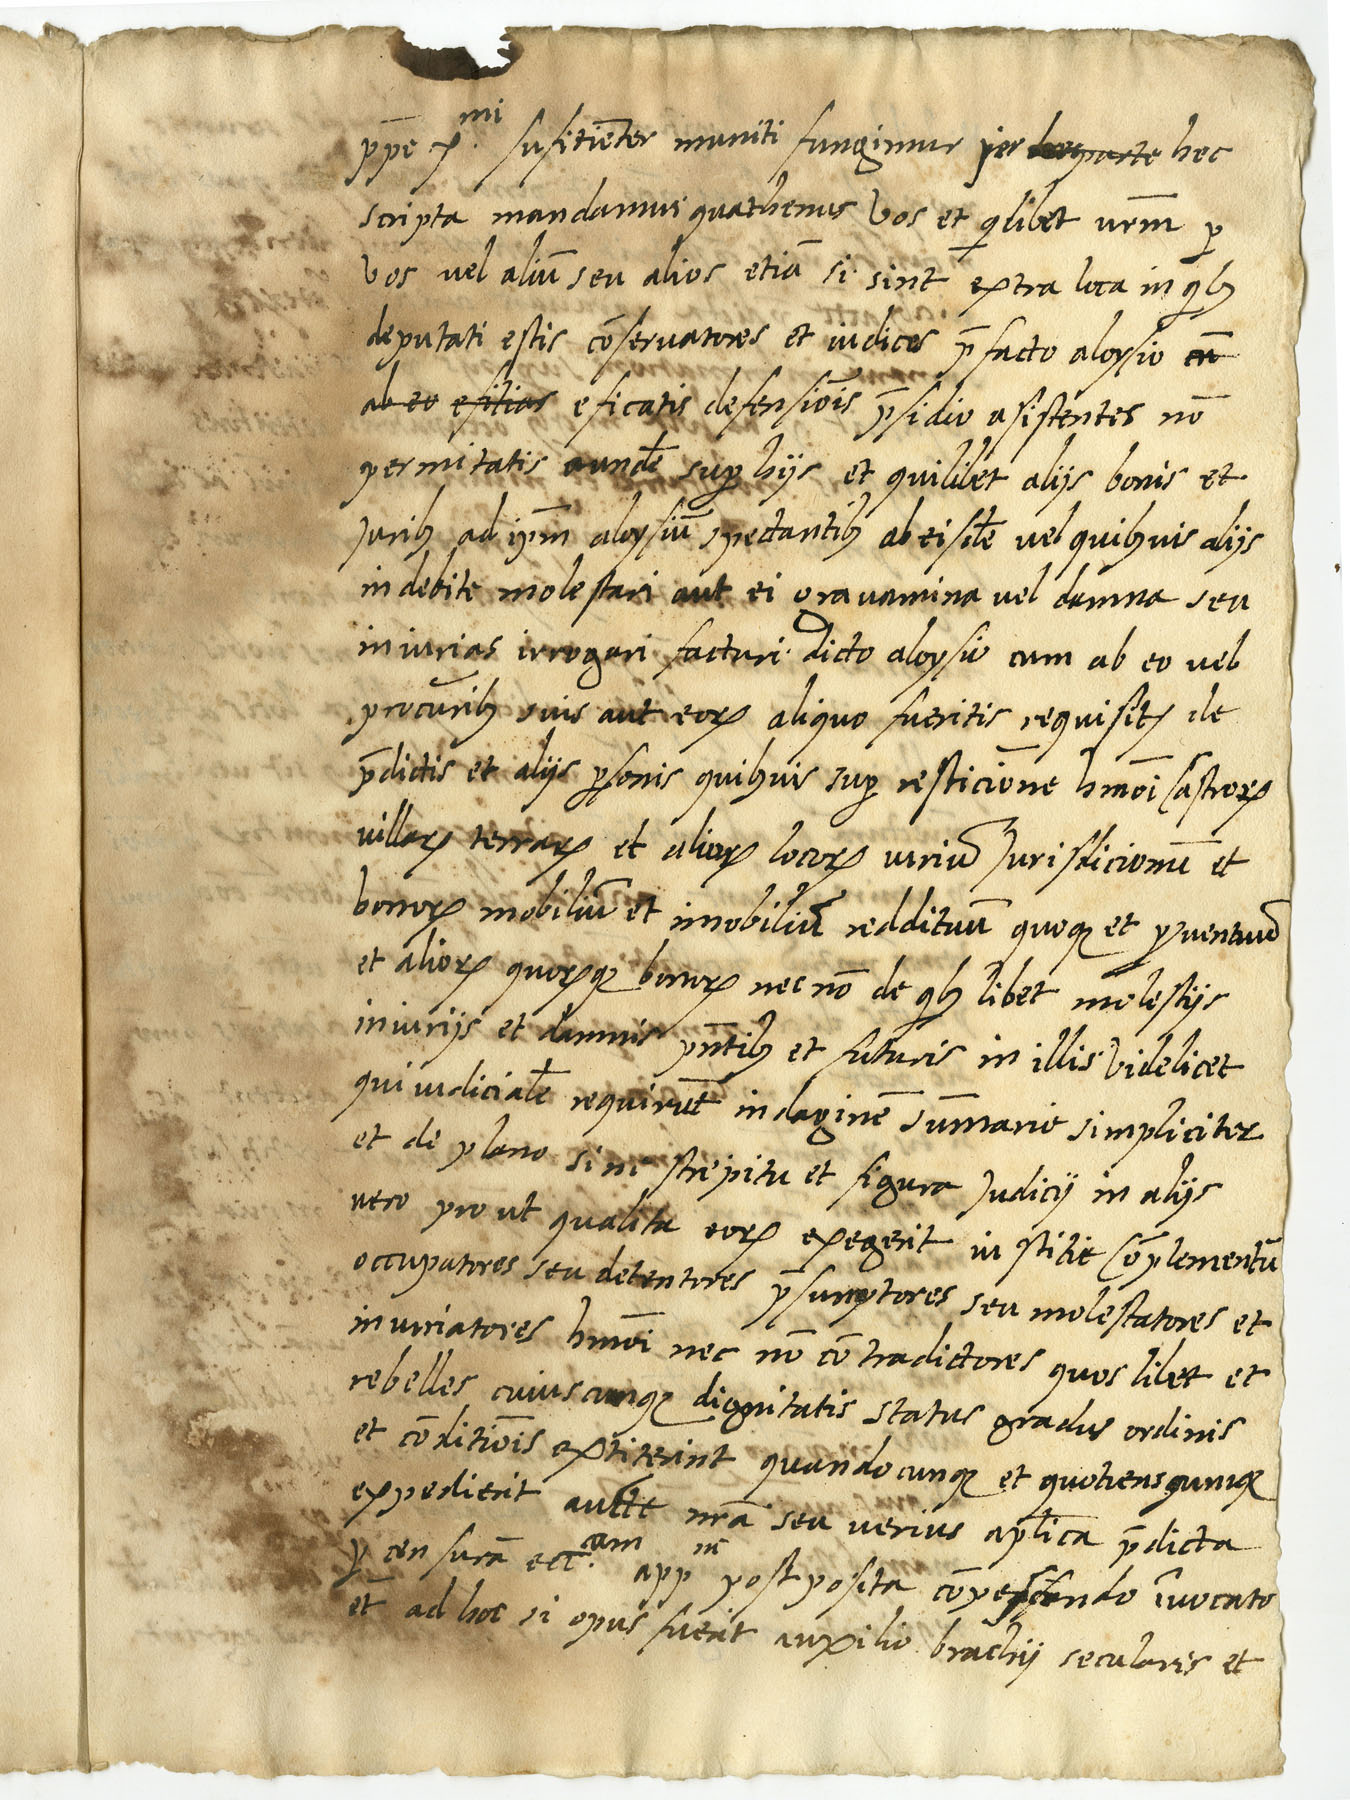 ppē x.mi sufitiēter muniti fungimur per hec parte hec
scripta mandamus quathenus Vos et qilibet urm̄ p
Vos vel aliū seu alios etiā si sint extra loca in qb
deputati estis cōservatores et iudices p̄facto aloysio cū
ab eo efitias eficatis defensiōis p̄sidio asistentes nō
permitatis eundē sup hijs et quilibet alijs bonis et
Jurib ad ipm̄ aloysiū spectantib ab eisdē vel quibuis alijs
indebite molestari aut ei gravamina vel damna seu
iniurias irrogari facturi dicto aloysio cum ab eo vel
procūrib suis aut eorꝝ aliquo fueritis requisitj de
p̄dictis et alijs psonis quibuis sup resticiōne hmōi Castrorꝝ
villarꝝ terrarꝝ et aliorꝝ locorꝝ iuriū Jurisdicionū et
bonorꝝ mobiliū et imobiliū reddituū quoqꝫ et pventuū
et aliorꝝ quorꝝqꝫ bonorꝝ nec nō de qb libet molestijs
iniurijs et damnis pn̄tib et futuris in illis Videlicet
qui iudicialē requirūt indaginē sūmarie simpliciter
et de plano sine strepitu et figura Judicij in alijs
vero pro ut qualita eorꝝ exegerit iustitie Cōplementū
occupatores seu detentores p̄sumptores seu molestatores et
iniuriatores hmōi nec nō cōtradictores quos libet et
rebelles cuiuscunqꝫ dignitatis status gradus ordinis
et cōditiōis extiterint quandocunqꝫ et quotienscunqꝫ
expedierit auctē nrā seu verius aplīca p̄dicta
p censurā ecc.am appne postposita cōpescendo īvocato
et̄ ad hoc si opus fuerit auxilio brachij secularis et